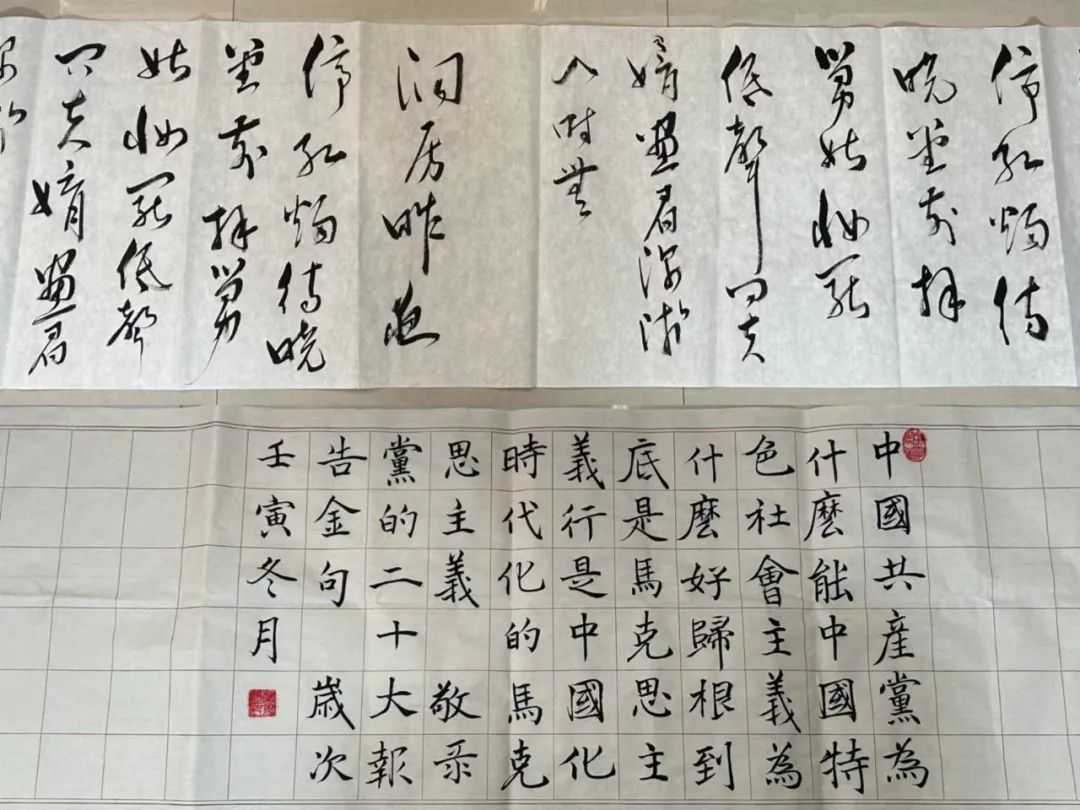 停紅燭待
曉堂前拜
舅姑妝罷
低聲問夫
婿畫眉深淺
入時無
洞房昨夜
停紅燭待曉
堂前拜舅
姑妝罷低聲
問夫婿畫眉
中國共產黨為
什麼能中國特
色社會主義為
什麼好歸根到
底是馬克思主
義行是中國化
時代化的馬克
思主義 敬录
黨的二十大報
告金句 歲次
壬寅冬月